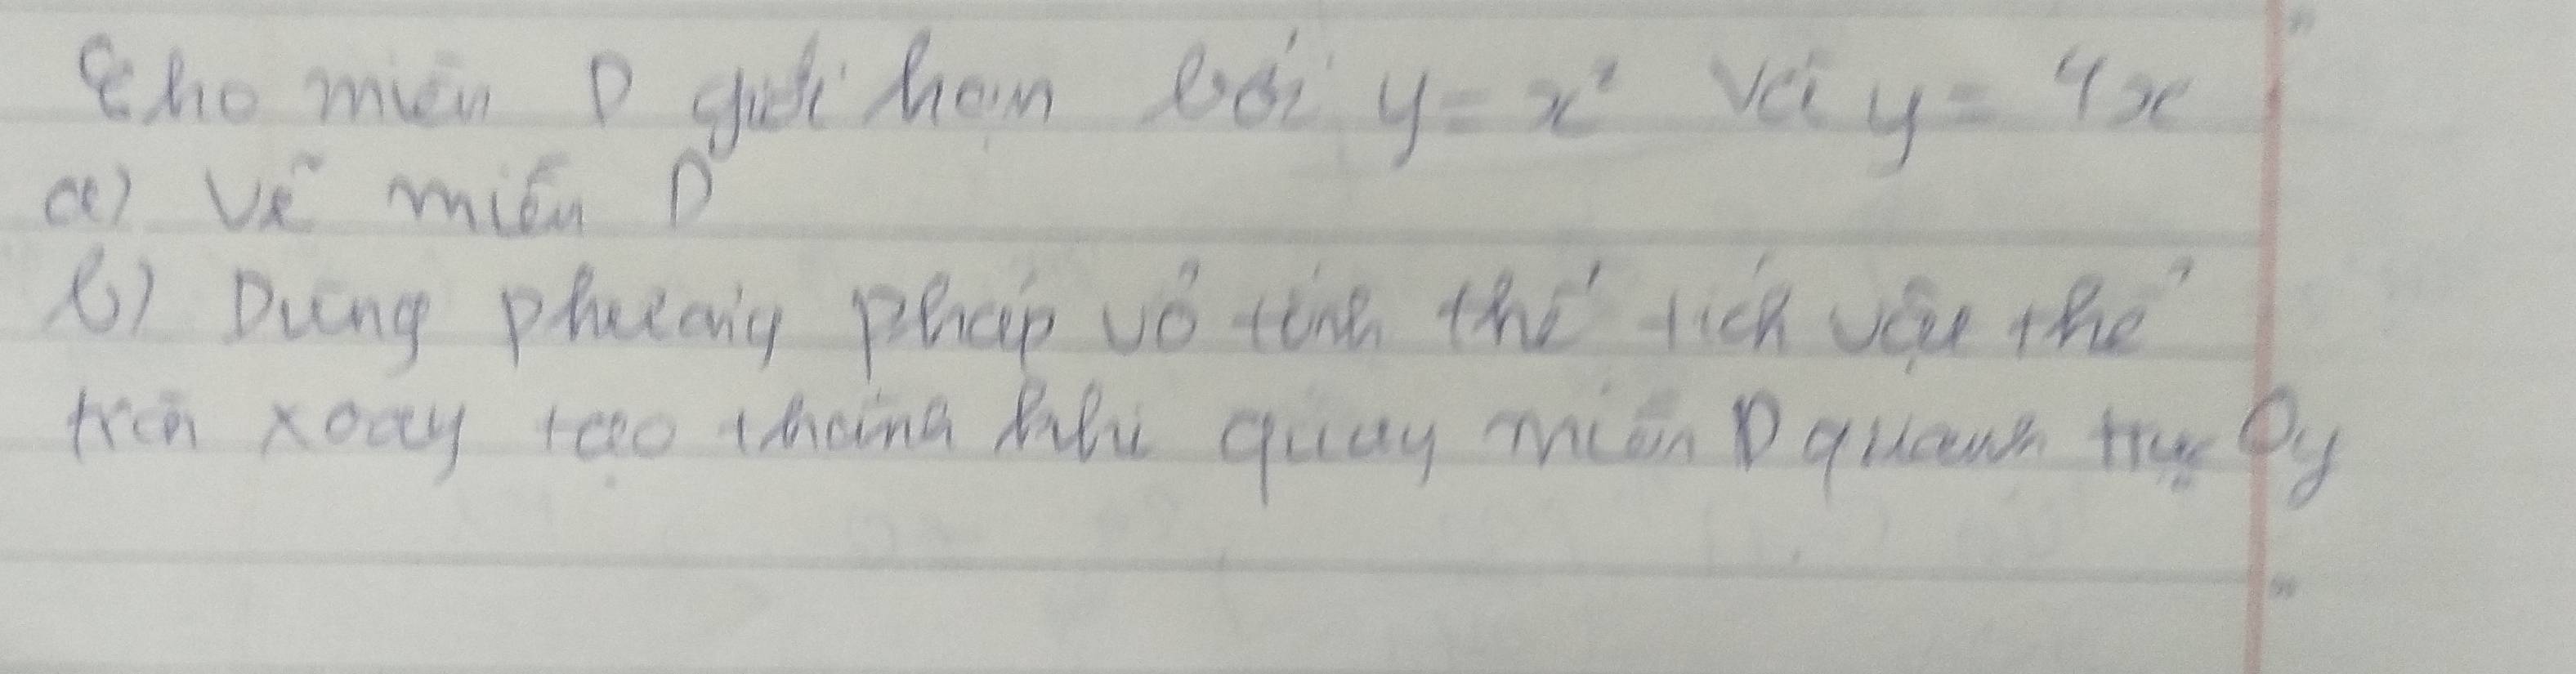 Cho miền D giới hạn bởi y = x² và y = 4x
a) Vẽ miền D
b) Dùng phương pháp vỏ tính thể tích vật thể
tròn xoay tạo thành khi quay miền D quanh trục Oy